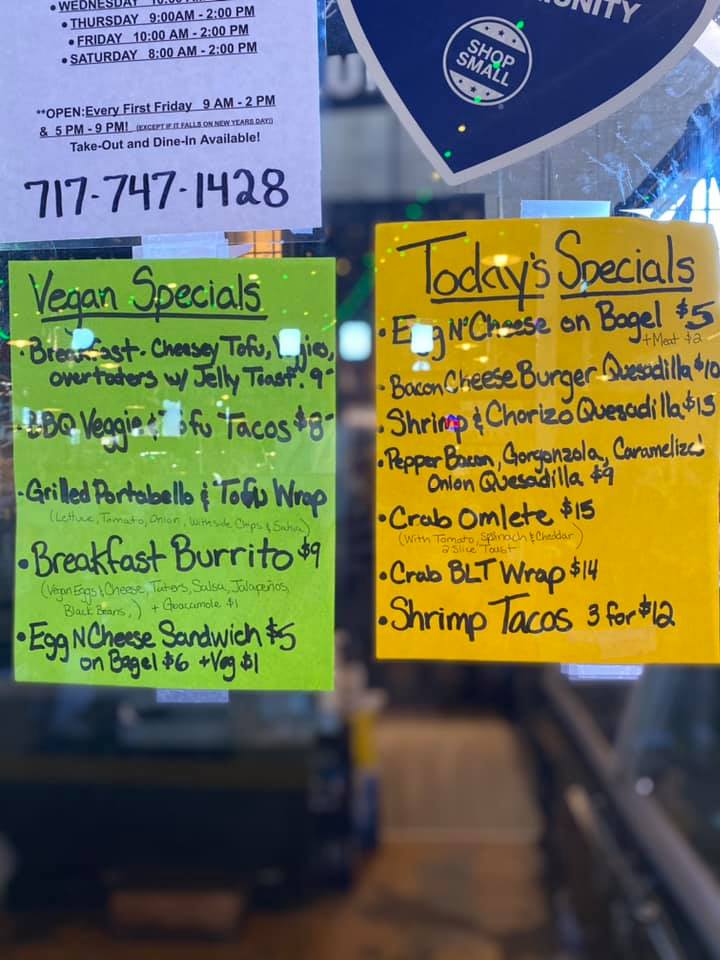 • WEDNESDAY
• THURSDAY 9:00AM - 2:00 PM
• FRIDAY 10:00 AM - 2:00 PM
• SATURDAY 8:00 AM - 2:00 PM
**OPEN:Every First Friday 9 AM - 2 PM
& 5 PM - 9 PM! (EXCEPT IF IT FALLS ON NEW YEARS DAY!)
Take-Out and Dine-In Available!
717-747-1428
SHOP
SMALL
Vegan Specials
• Breakfast - Cheesey Tofu,
overtaters w/ Jelly Toast. 9-
• BBQ Veggie & Tofu Tacos $8-
• Grilled Portabello & Tofu Wrap
(Lettuce, Tomato, Onion, with side Chips & Salsa)
• Breakfast Burrito $9
(Vegan Eggs & Cheese, Taters, Salsa, Jalapeños,
Black Beans,) + Guacamole $1
• Egg N Cheese Sandwich $5
on Bagel $6 + Veg $1
Today's Specials
• Egg N' Cheese on Bagel $5
+ Meat $2
• Bacon Cheese Burger Quesadilla $10
• Shrimp & Chorizo Quesadilla $15
• Pepper Bacon, Gorgonzola, Caramelized
Onion Quesadilla $9
• Crab Omlete $15
(With Tomato, Spinach & Cheddar)
2 Slice Toast
• Crab BLT Wrap $14
• Shrimp Tacos 3 for $12